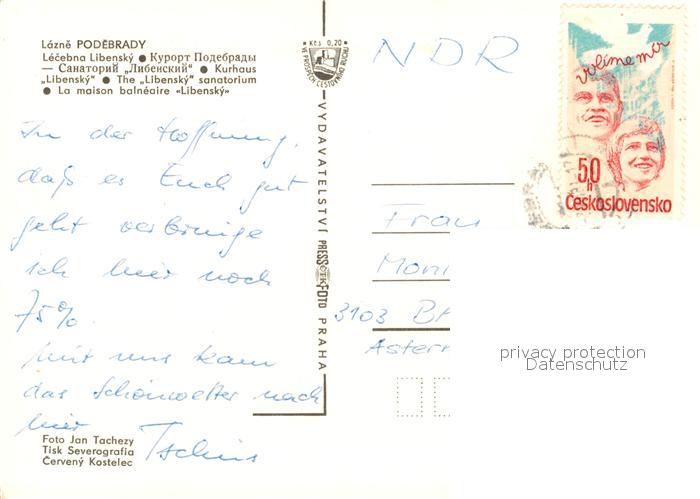 Lázně PODĚBRADY
Léčebna Libenský ● Курорт Подебрады
— Санаторий „Либенский" ● Kurhaus
„Libenský" ● The „Libenský" sanatorium
● La maison balnéaire «Libenský»
In der Hoffnung,
daß es Euch gut
geht verbringe
ich hier noch
75%.
Mit uns kam
das Schönwetter nach
hier
Foto Jan Tachezy
Tisk Severografia
Červený Kostelec
Kčs 0,20
VE PROSPĚCH CESTOVNÍHO RUCHU
VYDAVATELSTVÍ PRESSFOTO PRAHA
NDR
volíme mír
50 h
Československo
Frau
Moni
3103
Astern
privacy protection
Datenschutz